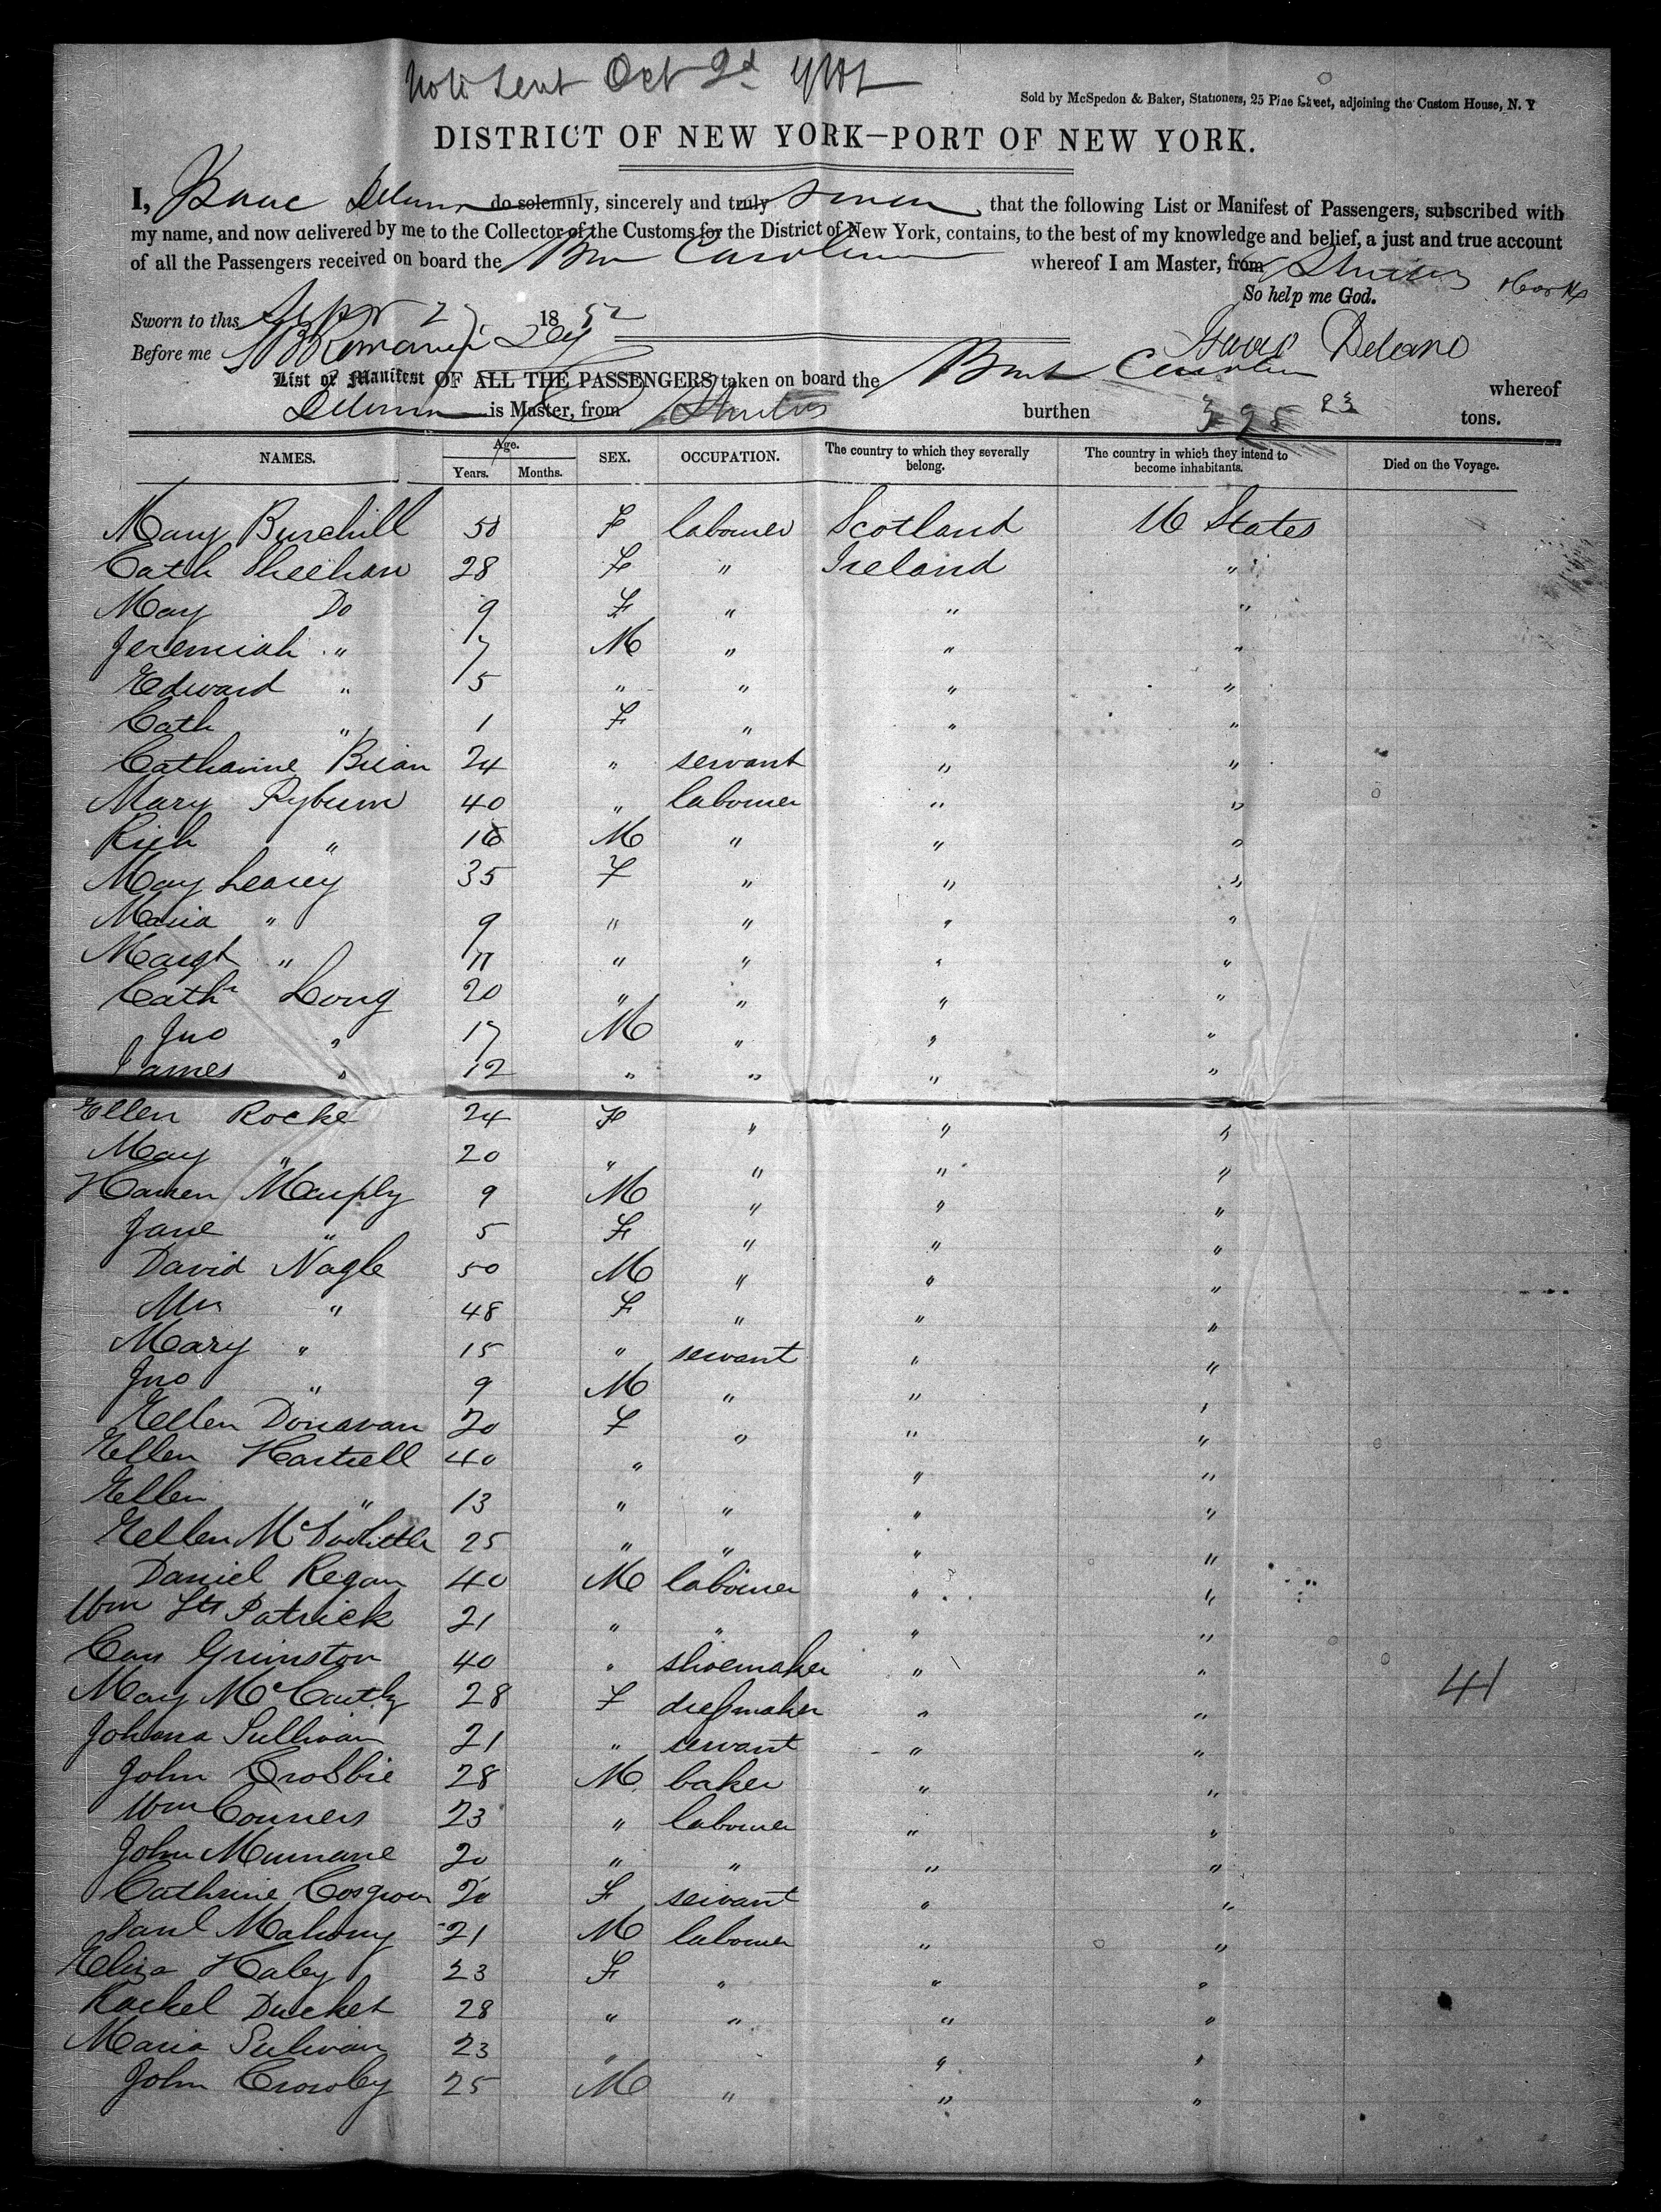 Note sent Oct 2d
Sold by McSpedon & Baker, Stationers, 25 Pine Street, adjoining the Custom House, N. Y
DISTRICT OF NEW YORK—PORT OF NEW YORK.
I, Isaac Delano do solemnly, sincerely and truly swear that the following List or Manifest of Passengers, subscribed with
my name, and now delivered by me to the Collector of the Customs for the District of New York, contains, to the best of my knowledge and belief, a just and true account
of all the Passengers received on board the Caroline whereof I am Master, from
So help me God.
Sworn to this Sept 18 52
Before me Isaac Delano
List or Manifest OF ALL THE PASSENGERS taken on board the Bark Caroline whereof
Delano is Master, from burthen 398 23 tons.
NAMES. Age. Years. Months. SEX. OCCUPATION. The country to which they severally belong. The country in which they intend to become inhabitants. Died on the Voyage.
Mary Burchill 50 F labourer Scotland U States
Cath Sheehan 28 F " Ireland "
May Do 9 F " " "
Jeremiah " 7 M " " "
Edward " 5 " " " "
Cath " 1 F " " "
Catharine Brian 24 " servant " "
Mary Ryburn 40 " labourer " "
Rich " 16 M " " "
May Leary 35 F " " "
Maria " 9 " " " "
Margt " 11 " " " "
Cath Long 20 " " " "
Jno " 17 M " " "
James " 12 " " " "
Ellen Roche 24 F " " "
May " 20 " " " "
9 M " " "
Jane " 5 F " " "
David Nagle 50 M " " "
Mrs " 48 F " " "
Mary " 15 " servant " "
Jno " 9 M " " "
Ellen Donavan 20 F " " "
Ellen Hartnell 40 " " "
Ellen " 13 " " " "
Ellen 25 " " " "
Daniel Regan 40 M labourer " "
Wm Patrick 21 " " " "
Grimston 40 " shoemaker " "
May McCarthy 28 F dressmaker " " 41
Johana Sullivan 21 " servant " "
John Crosbie 28 M baker " "
Wm Conners 23 " labourer " "
John Murnane 20 " " " "
Cathrine Cosgrove 20 F servant " "
Danl Mahony 21 M labourer " "
Eliza Haley 23 F " " "
Rachel Ducket 28 " " " "
Maria Sulivan 23 " " "
John Crowley 25 M " " "